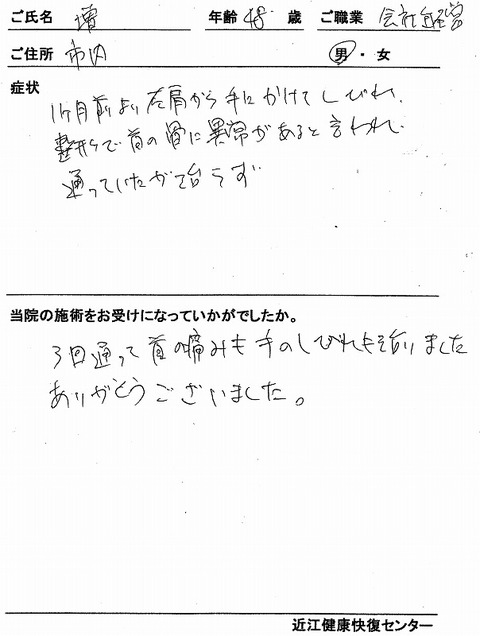 ご氏名 増 年齢 48 歳 ご職業 会社経営
ご住所 市内 男・女
症状
1ヶ月前より右肩から手にかけてしびれ、
整形で首の骨に異常があると言われ、
通っていたが治らず
当院の施術をお受けになっていかがでしたか。
3回通って首の痛みも手のしびれも治りました
ありがとうございました。
近江健康快復センター